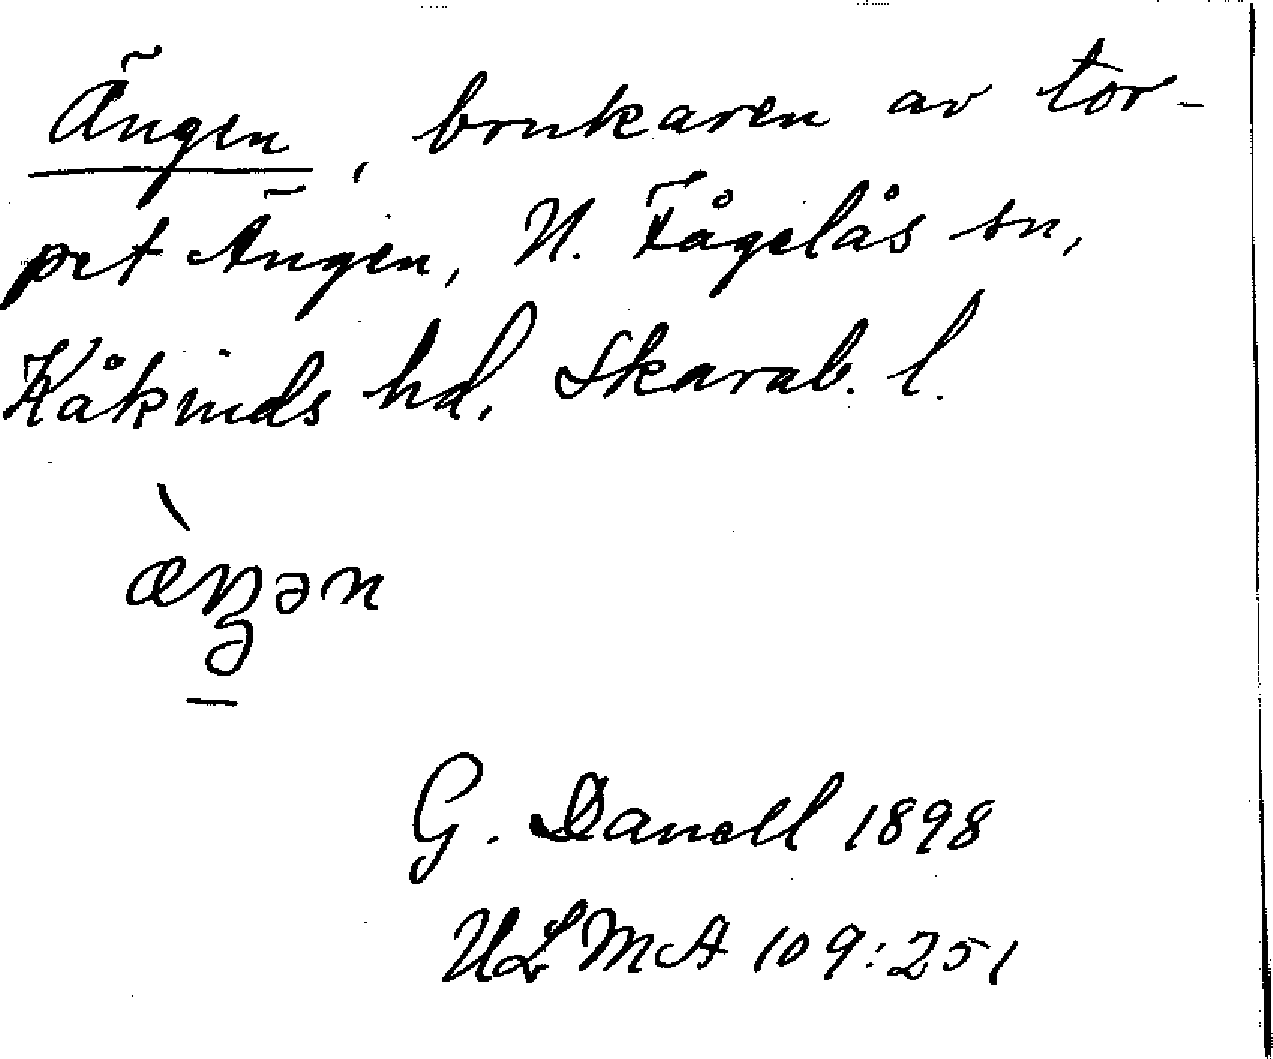 Ängen, brukaren av tor-
pet Ängen, N. Fågelås sn,
Kåkinds hd, Skarab. l.
æ̀ŋən
G. Danell 1898
ULMA 109:251